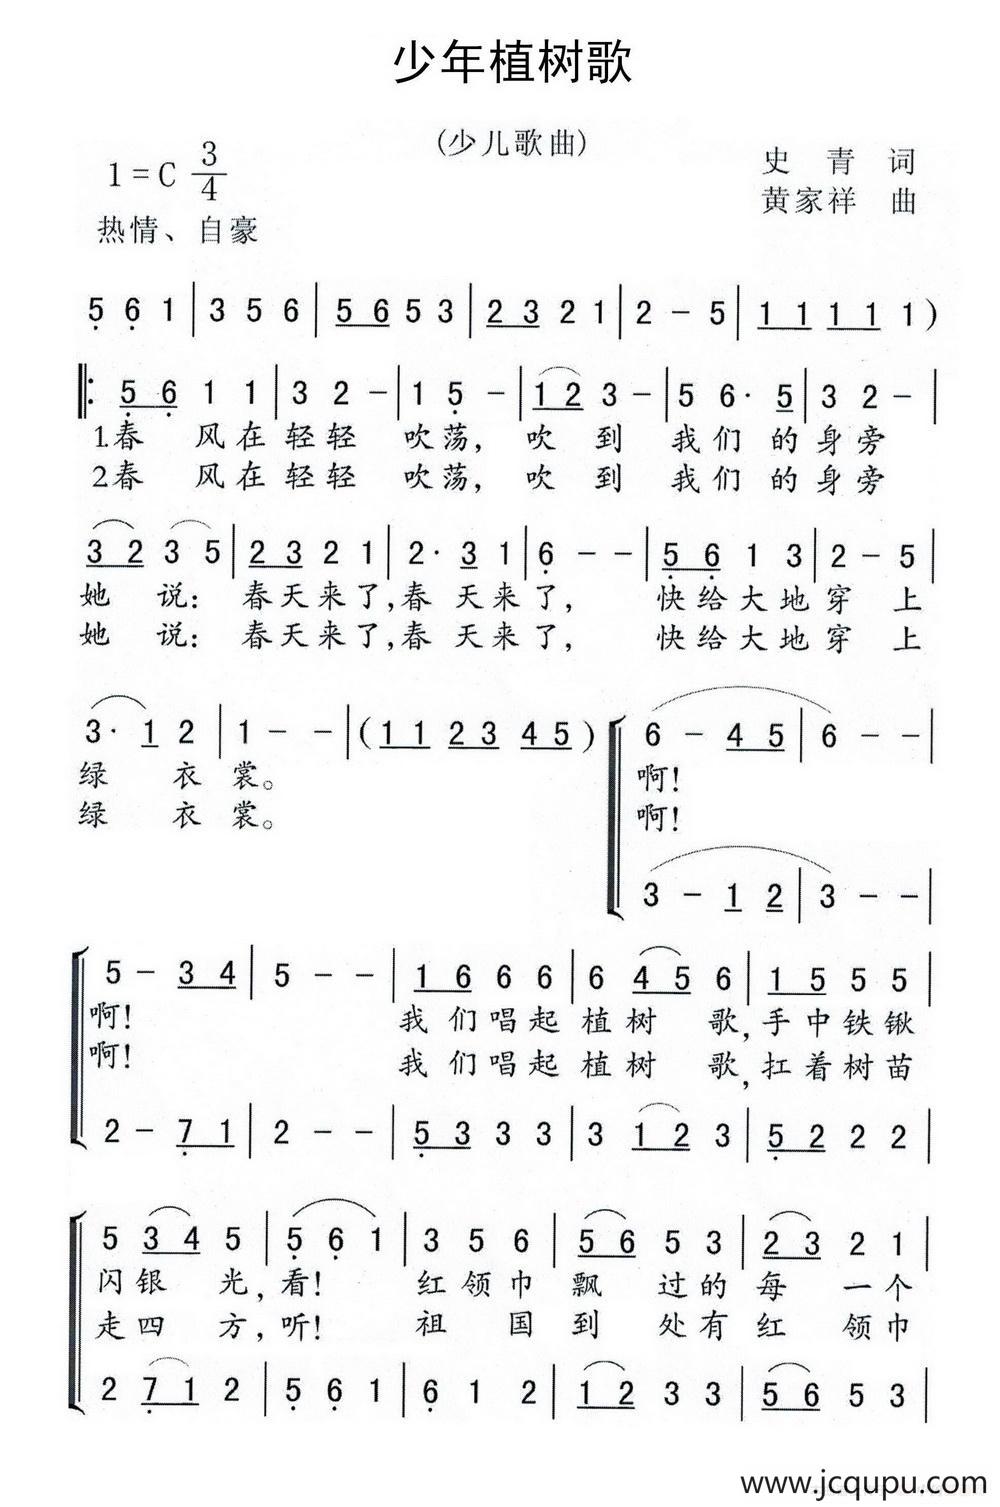 少年植树歌
(少儿歌曲)
1=C 3/4
史 青 词
黄家祥 曲
热情、自豪
5 6 1 | 3 5 6 | 5 6 5 3 | 2 3 2 1 | 2 - 5 | 1 1 1 1 1 )
5 6 1 1 | 3 2 - | 1 5 - | 1 2 3 - | 5 6· 5 | 3 2 - |
1.春 风在轻轻 吹荡, 吹 到 我们 的身旁
2春 风在轻轻 吹荡, 吹 到 我们 的身旁
3 2 3 5 | 2 3 2 1 | 2· 3 1 | 6 - - | 5 6 1 3 | 2 - 5 |
她 说: 春天来了,春 天来了, 快给大地穿 上
她 说: 春天来了,春 天来了, 快给大地穿 上
3· 1 2 | 1 - - | ( 1 1 2 3 4 5 ) | 6 - 4 5 | 6 - - |
绿 衣 裳。 啊!
绿 衣 裳。 啊!
3 - 1 2 | 3 - - |
5 - 3 4 | 5 - - | 1 6 6 6 | 6 4 5 6 | 1 5 5 5 |
啊! 我们唱起植树 歌,手中铁锹
啊! 我们唱起植树 歌,扛着树苗
2 - 7 1 | 2 - - | 5 3 3 3 | 3 1 2 3 | 5 2 2 2 |
5 3 4 5 | 5 6 1 | 3 5 6 | 5 6 5 3 | 2 3 2 1 |
闪银 光,看! 红领巾 飘 过的每 一个
走四 方,听! 祖 国到 处有红 领巾
2 7 1 2 | 5 6 1 | 6 1 2 | 1 2 3 3 | 5 6 5 3 |
www.jcqupu.com